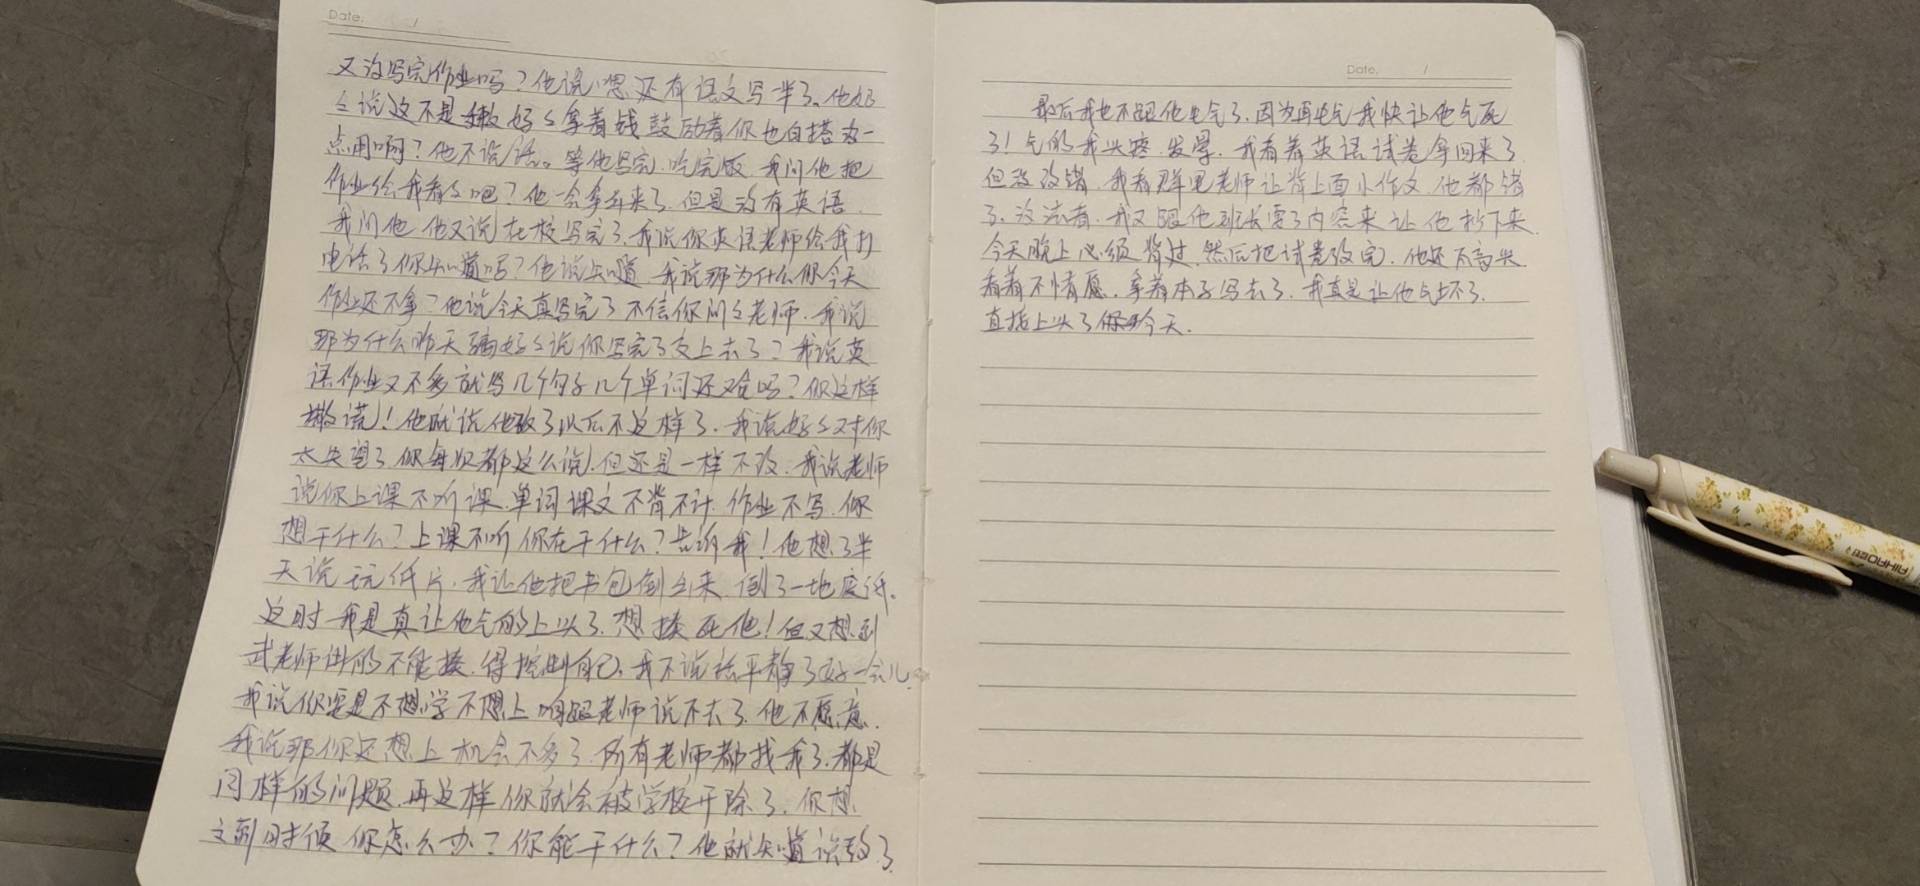 Date. /
又没写完作业吗？他说嗯还有语文写一半了。他妈
么说这不是嘛 妈么拿着钱鼓励着你也白搭 为一
点用啊？他不说话。等他写完吃完饭 我问他把
作业给我看么吧？他一会拿出来了 但是没有英语
我问他 他又说在校写完了 我说你英语老师给我打
电话了你知道吗？他说知道 我说那为什么你今天
作业还不拿？他说今天真写完了不信你问么老师。我说
那为什么昨天骗妈么说你写完了交上去了？我说英
语作业又不多就写几个句子几个单词还难吗？你这样
撒谎！他就说他改了以后不这样了。我说妈么对你
太失望了 你每次都这么说 但还是一样不改。我说老师
说你上课不听课 单词课文不背不计 作业不写 你
想干什么？上课不听你在干什么？告诉我！他想了半
天说玩纸片。我让他把书包倒出来 倒了一地废纸。
这时我是真让他气的上头了 想揍死他！但又想到
武老师讲的不能揍 得控制自己。我不说话平静了好一会儿。
我说你要是不想学不想上 咱跟老师说不去了 他不愿意。
我说那你还想上 机会不多了 所有老师都找我了 都是
同样的问题 再这样你就会被学校开除了。你想
么到时候你怎么办？你能干什么？他就知道说改了
Date. /
最后我也不跟他生气了，因为再生气我快让他气死
了！气的我头疼 发晕。我看着英语试卷拿回来了
但没改错。我看群里老师让背上面小作文 他都错
了。没法看。我又跟他班长要了内容来 让他抄下来
今天晚上必须背过 然后把试卷改完。他还不高兴
看着不情愿。拿着本子写去了。我真是让他气坏了
直接上头了 今天.